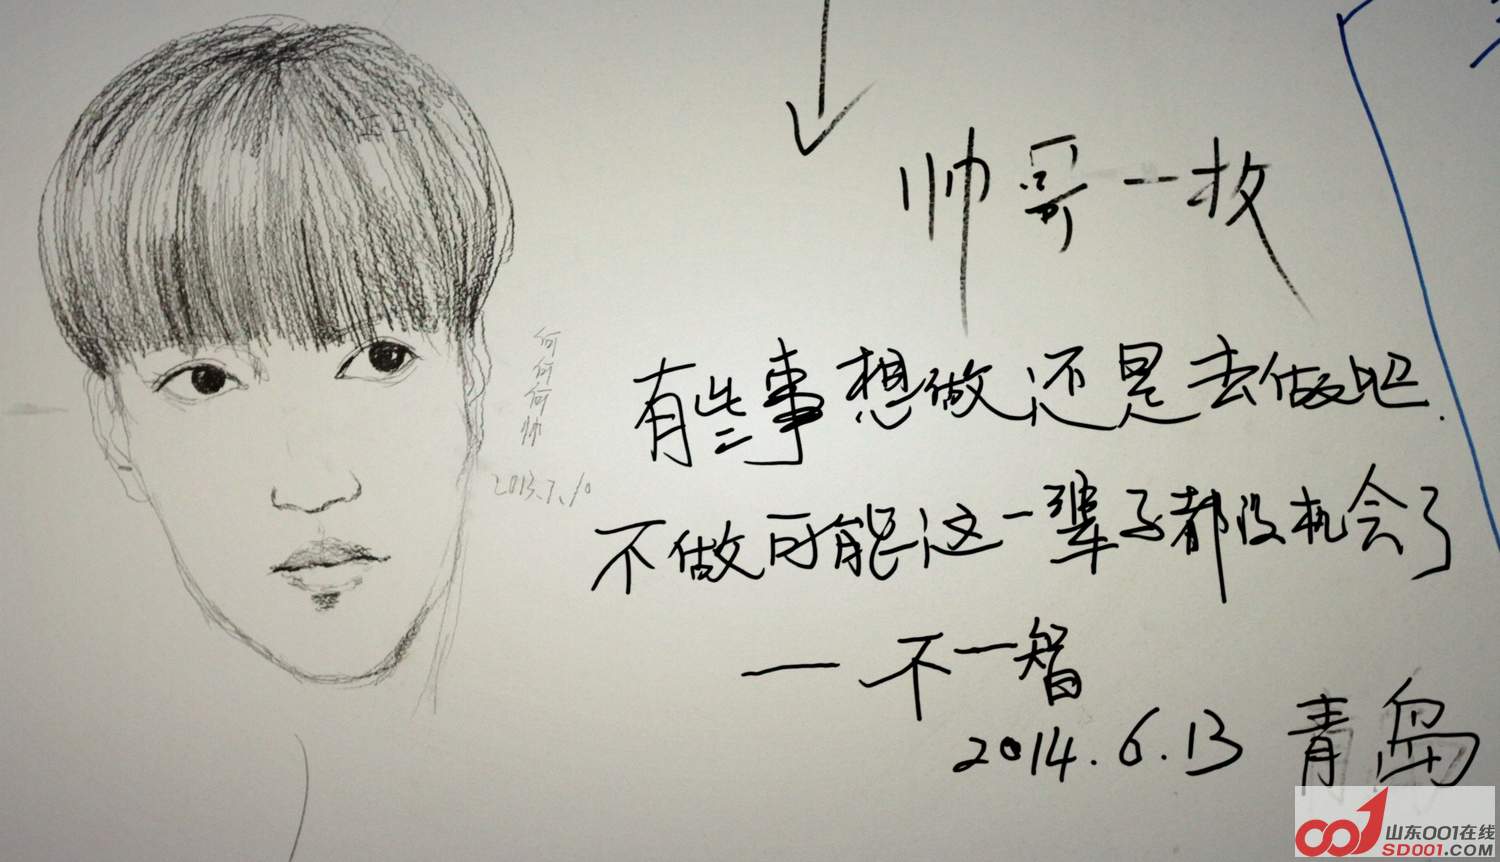 帅哥一枚
何何何帅
2013.7.10
有些事想做还是去做吧.
不做可能这一辈子都没机会了
一不一智
2014.6.13 青岛
001 山东001在线
SD001.COM